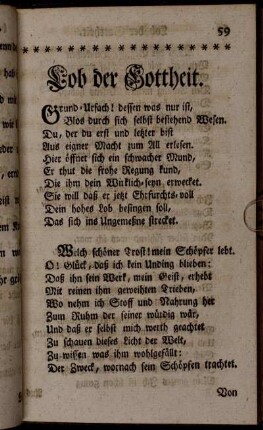 59
Lob der Gottheit.
Grund-Ursach! dessen was nur ist,
Blos durch sich selbst bestehend Wesen.
Du, der du erst und letzter bist
Aus eigner Macht zum All erlesen.
Hier öffnet sich ein schwacher Mund,
Er thut die frohe Regung kund,
Die ihm dein Wirklich-seyn erwecket.
Sie will daß er jetzt Ehrfurchts-voll
Dein hohes Lob besingen soll,
Das sich ins Ungemeßne strecket.
Welch schöner Trost! mein Schöpfer lebt.
O! Glück, daß ich kein Unding blieben:
Daß ihn sein Werk, mein Geist, erhebt
Mit reinen ihm geweihten Trieben,
Wo nehm ich Stoff und Nahrung her
Zum Ruhm der seiner würdig wär,
Und daß er selbst mich werth geachtet
Zu schauen dieses Licht der Welt,
Zu wissen was ihm wohlgefällt:
Der Zweck, wornach sein Schöpfen trachtet.
Von